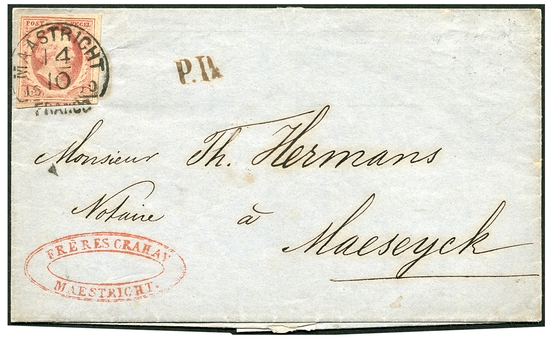 POST ZEGEL
MAASTRICHT
14
10
FRANCO
P.D.
Monsieur Th. Hermans
Notaire
à
Maeseyck
FRÈRES CRAHAY
MAESTRICHT.